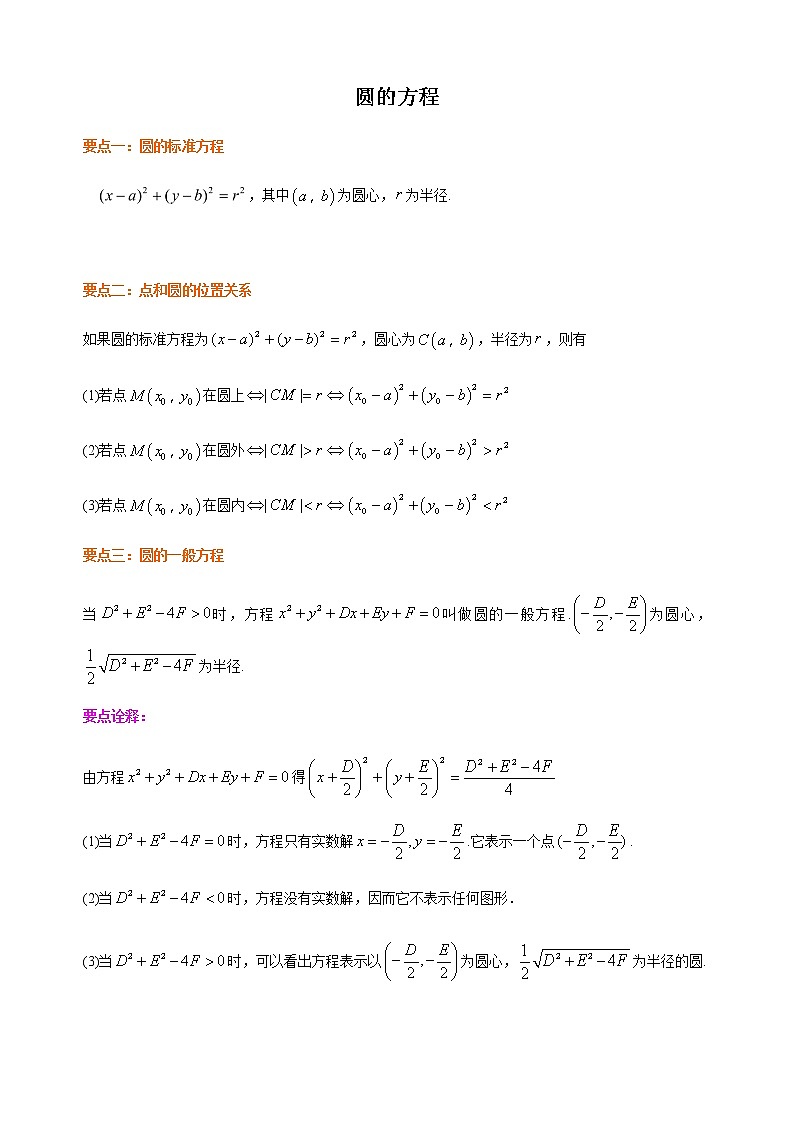 圆的方程
要点一：圆的标准方程
(x－a)²＋(y－b)²＝r²，其中(a，b)为圆心，r为半径.
要点二：点和圆的位置关系
如果圆的标准方程为(x－a)²＋(y－b)²＝r²，圆心为C(a，b)，半径为r，则有
(1)若点M(x₀，y₀)在圆上⇔|CM|=r⇔(x₀－a)²＋(y₀－b)²＝r²
(2)若点M(x₀，y₀)在圆外⇔|CM|>r⇔(x₀－a)²＋(y₀－b)²＞r²
(3)若点M(x₀，y₀)在圆内⇔|CM|<r⇔(x₀－a)²＋(y₀－b)²＜r²
要点三：圆的一般方程
当D²＋E²－4F＞0时，方程x²＋y²＋Dx＋Ey＋F＝0叫做圆的一般方程.(－D/2,－E/2)为圆心，
1/2√(D²＋E²－4F)为半径.
要点诠释：
由方程x²＋y²＋Dx＋Ey＋F＝0得(x＋D/2)²＋(y＋E/2)²＝(D²＋E²－4F)/4
(1)当D²＋E²－4F＝0时，方程只有实数解x＝－D/2,y＝－E/2.它表示一个点(－D/2,－E/2).
(2)当D²＋E²－4F＜0时，方程没有实数解，因而它不表示任何图形.
(3)当D²＋E²－4F＞0时，可以看出方程表示以(－D/2,－E/2)为圆心，1/2√(D²＋E²－4F)为半径的圆.